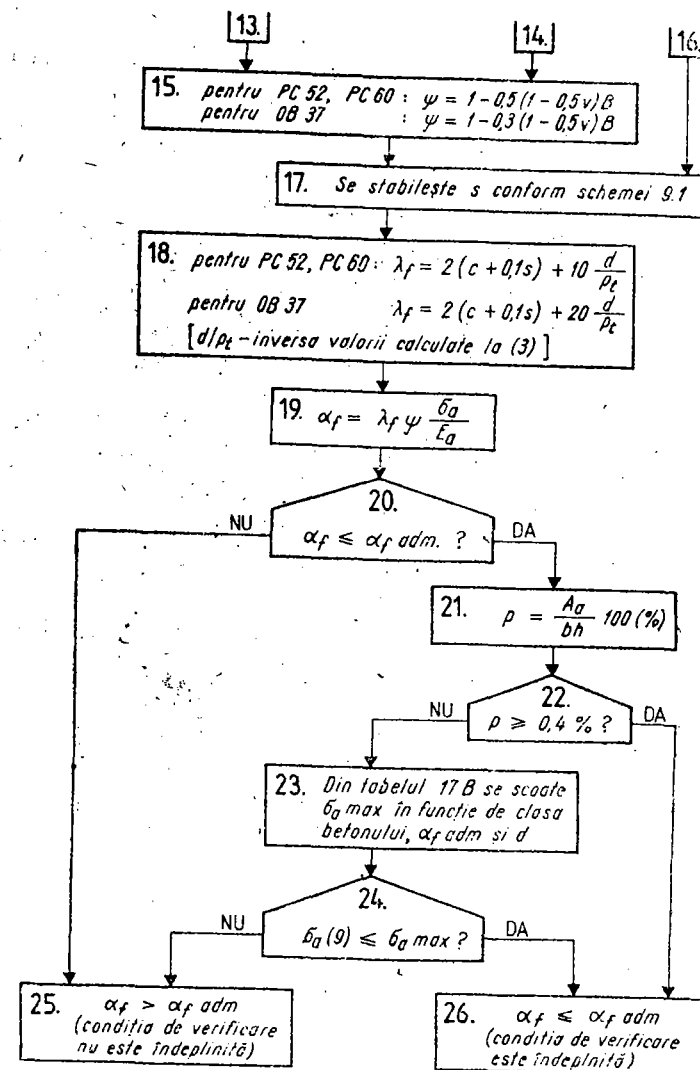 13.
14.
16.
15. pentru PC 52, PC 60 : ψ = 1 - 0,5 (1 - 0,5 ν) B
pentru OB 37 : ψ = 1 - 0,3 (1 - 0,5 ν) B
17. Se stabilește s conform schemei 9.1
18. pentru PC 52, PC 60 : λf = 2 (c + 0,1s) + 10 d/pt
pentru OB 37 λf = 2 (c + 0,1s) + 20 d/pt
[d/pt - inversa valorii calculate la (3)]
19. αf = λf ψ σa/Ea
20.
αf ≤ αf adm. ?
NU
DA
21. p = Aa/bh 100 (%)
22.
p ≥ 0,4 % ?
NU
DA
23. Din tabelul 17 B se scoate
σa max în funcție de clasa
betonului, αf adm și d
24.
σa (9) ≤ σa max ?
NU
DA
25. αf > αf adm
(condiția de verificare
nu este îndeplinită)
26. αf ≤ αf adm
(condiția de verificare
este îndeplnită)